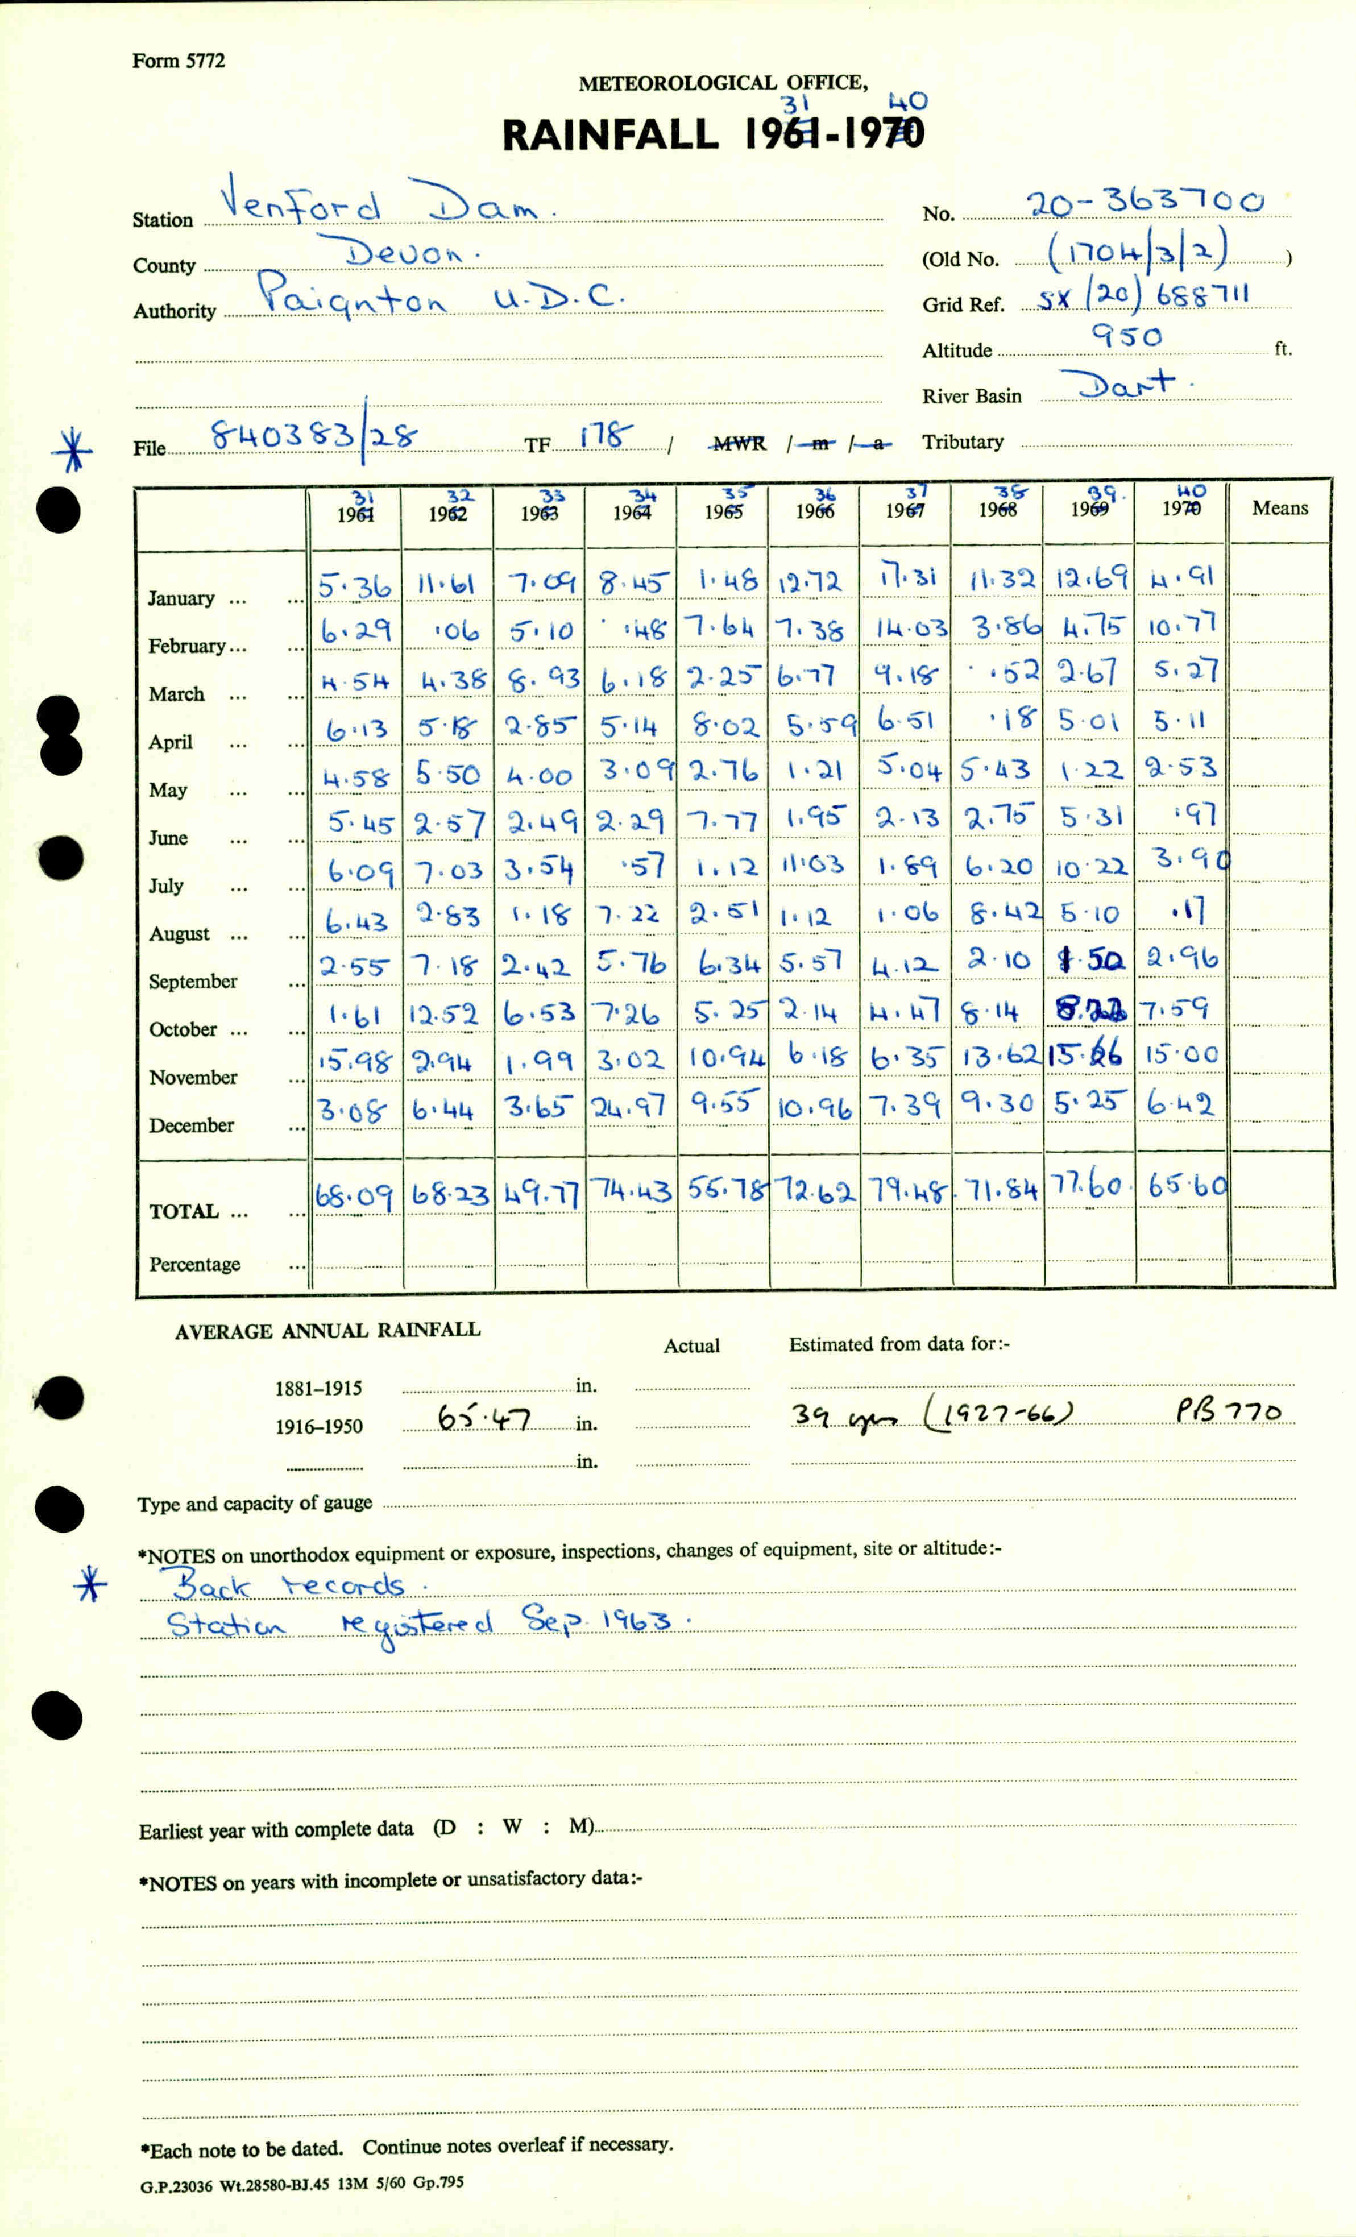 Form 5772
METEOROLOGICAL OFFICE,
31 40
RAINFALL 1961-1970
Station Venford Dam. No. 20-363700
County Devon. (Old No. (1704/3/2) )
Authority Paignton U.D.C. Grid Ref. SX (20) 688711
Altitude 950 ft.
River Basin Dart.
* File 840383/28 TF 178 / MWR / m / a Tributary
31 32 33 34 35 36 37 38 39. 40
1961 1962 1963 1964 1965 1966 1967 1968 1969 1970 Means
January ... ... 5.36 11.61 7.09 8.45 1.48 12.72 17.31 11.32 12.69 4.91
February... ... 6.29 .06 5.10 .48 7.64 7.38 14.03 3.86 4.75 10.77
March ... ... 4.54 4.38 8.93 6.18 2.25 6.77 9.18 .52 2.67 5.27
April ... ... 6.13 5.18 2.85 5.14 8.02 5.59 6.51 .18 5.01 5.11
May ... ... 4.58 5.50 4.00 3.09 2.76 1.21 5.04 5.43 1.22 2.53
June ... ... 5.45 2.57 2.49 2.29 7.77 1.95 2.13 2.75 5.31 .97
July ... ... 6.09 7.03 3.54 .57 1.12 11.03 1.89 6.20 10.22 3.90
August ... ... 6.43 2.83 1.18 7.22 2.51 1.12 1.06 8.42 5.10 .17
September ... 2.55 7.18 2.42 5.76 6.34 5.57 4.12 2.10 1.50 2.96
October ... ... 1.61 12.52 6.53 7.26 5.25 2.14 4.47 8.14 8.22 7.59
November ... 15.98 2.94 1.99 3.02 10.94 6.18 6.35 13.62 15.66 15.00
December ... 3.08 6.44 3.65 24.97 9.55 10.96 7.39 9.30 5.25 6.42
TOTAL ... ... 68.09 68.23 49.77 74.43 65.78 72.62 79.48. 71.84 77.60. 65.60
Percentage ...
AVERAGE ANNUAL RAINFALL
Actual Estimated from data for:-
1881-1915 in.
1916-1950 65.47 in. 39 yrs (1927-66) PB 770
in.
Type and capacity of gauge
*NOTES on unorthodox equipment or exposure, inspections, changes of equipment, site or altitude:-
* Back records.
Station registered Sep. 1963.
Earliest year with complete data (D : W : M)
*NOTES on years with incomplete or unsatisfactory data:-
*Each note to be dated. Continue notes overleaf if necessary.
G.P.23036 Wt.28580-BJ.45 13M 5/60 Gp.795